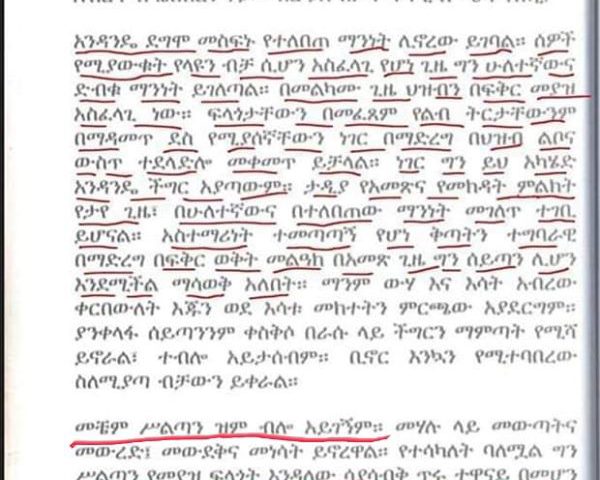 አንዳንዴ ደግሞ መስፍኑ የተለበጠ ማንነት ሊኖረው ይገባል። ሰዎች
የሚያውቁት የላዩን ብቻ ሲሆን አስፈላጊ የሆነ ጊዜ ግን ሁለተኛውና
ድብቁ ማንነት ይገለጣል። በመልካሙ ጊዜ ህዝብን በፍቅር መያዝ
አስፈላጊ ነው። ፍላጎታቸውን በመፈጸም የልብ ትርታቸውንም
በማዳመጥ ደስ የሚያሰኛቸውን ነገር በማድረግ በህዝብ ልቦና
ውስጥ ተደላድሎ መቀመጥ ይቻላል። ነገር ግን ይህ አካሄድ
አንዳንዴ ችግር አያጣውም። ታዲያ የአመጽና የመከዳት ምልክት
የታየ ጊዜ፣ በሁለተኛውና በተለበጠው ማንነት መገለጥ ተገቢ
ይሆናል። አስተማሪነት ተመጣጣኝ የሆነ ቅጣትን ተግባራዊ
በማድረግ በፍቅር ወቅት መልዓክ በአመጽ ጊዜ ግን ሰይጣን ሊሆን
እንደሚችል ማሳወቅ አለበት። ማንም ውሃ እና እሳት አብረው
ቀርበውለት እጁን ወደ እሳቱ መከተትን ምርጫው አያደርግም።
ያንቀላፋ ሰይጣንንም ቀስቅሶ በራሱ ላይ ችግርን ማምጣት የሚሻ
ይኖራል፣ ተብሎ አይታሰብም። ቢኖር እንኳን የሚተባበረው
ስለሚያጣ ብቻውን ይቀራል።
መቼም ሥልጣን ዝም ብሎ አይገኝም። መሃሉ ላይ መውጣትና
መውረድ፤ መውደቅና መነሳት ይኖረዋል። የተሳካለት ባለሟል ግን
ሥልጣን የመያዝ ፍላጎት እንዳለው ሳያሳብቅ ጥሩ ተዋናይ በመሆን